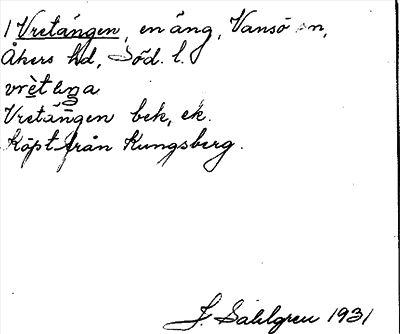 1 Vretången, en äng, Vansö sn,
Åkers hd, Söd. l.
Vretängen bek, ek.
Köpt från Kungsberg.
J. Sahlgren 1931